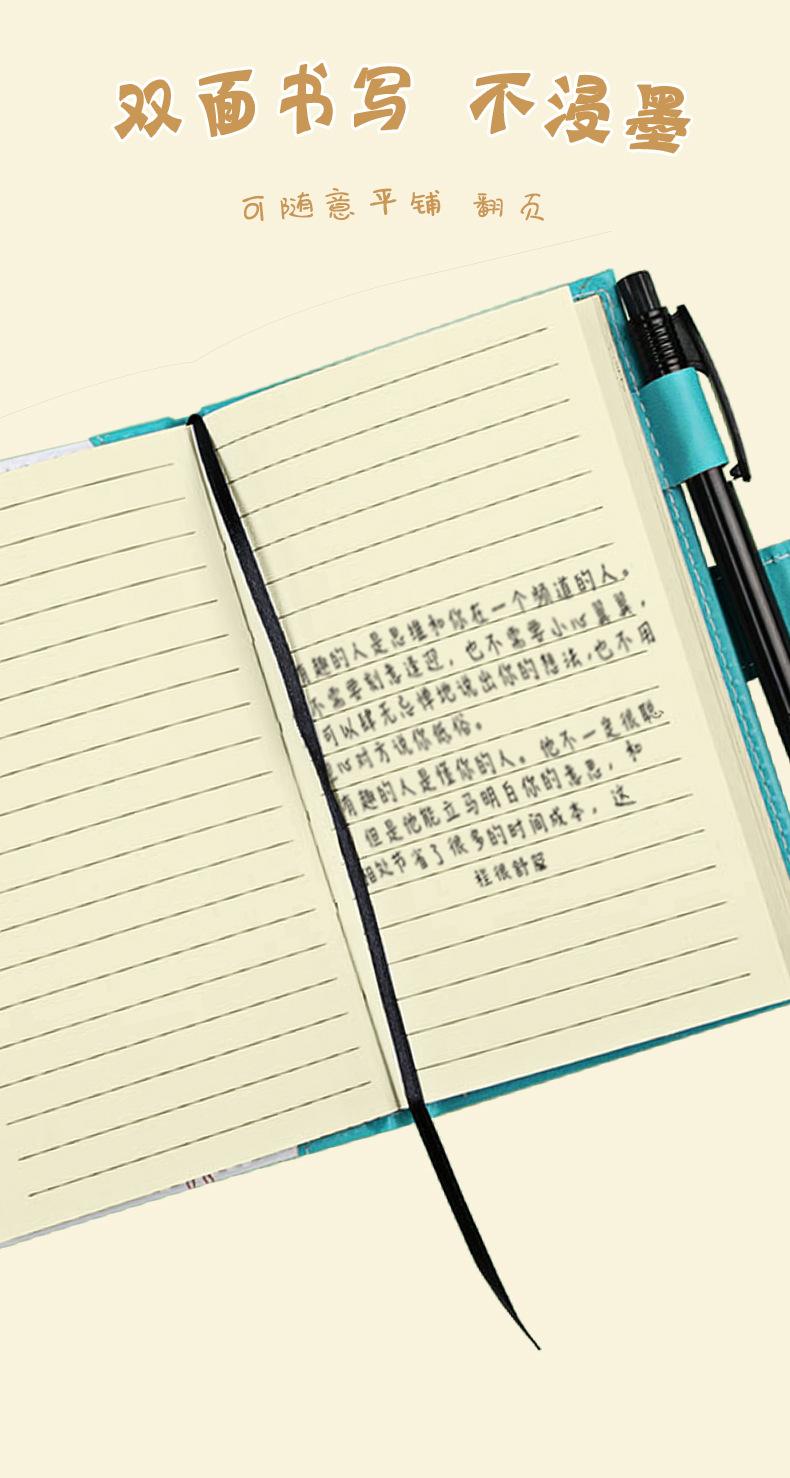 双面书写 不浸墨
可随意平铺 翻页
有趣的人是思维和你在一个频道的人。
不需要刻意逢迎，也不需要小心翼翼，
可以肆无忌惮地说出你的想法，也不用
心对方说你低俗。
有趣的人是懂你的人。他不一定很聪
但是他能立马明白你的意思，和
相处节省了很多的时间成本，这
程很舒服